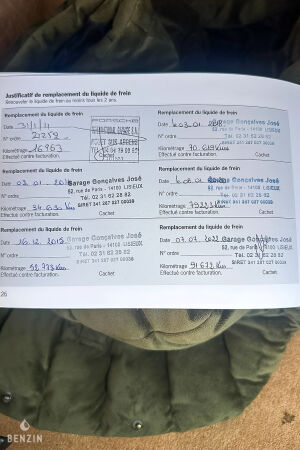 Justificatif de remplacement du liquide de frein
Renouveler le liquide de frein au moins tous les 2 ans.
Remplacement du liquide de frein
Date 31/1/11
N° ordre 21259
Kilométrage 16963
Effectué contre facturation.
PORSCHE
Cachet
Remplacement du liquide de frein
Date 03.01
Garage Gonçalves José
52, rue de Paris - 14100 LISIEUX
Tél. 02 31 62 28 82
SIRET 341 267 027 00038
N° ordre
Kilométrage 34
Effectué contre facturation.
Cachet
Remplacement du liquide de frein
Date 16.12.2015
Garage Gonçalves José
52, rue de Paris - 14100 LISIEUX
Tél. 02 31 62 28 82
SIRET 341 267 027 00038
N° ordre
Kilométrage
Effectué contre facturation.
Cachet
Remplacement du liquide de frein
Date 03.01.2018
Garage Gonçalves José
52, rue de Paris - 14100 LISIEUX
Tél. 02 31 62 28 82
SIRET 341 267 027 00038
N° ordre
Kilométrage 70
Effectué contre facturation.
Cachet
Remplacement du liquide de frein
Date
Garage Gonçalves José
52, rue de Paris - 14100 LISIEUX
Tél. 02 31 62 28 82
SIRET 341 267 027 00038
N° ordre
Kilométrage
Effectué contre facturation.
Cachet
Remplacement du liquide de frein
Date 07.07.2022
Garage Gonçalves José
52, rue de Paris - 14100 LISIEUX
Tél. 02 31 62 28 82
SIRET 341 267 027 00038
N° ordre
Kilométrage 91673 Km
Effectué contre facturation.
Cachet
26
BENZIN